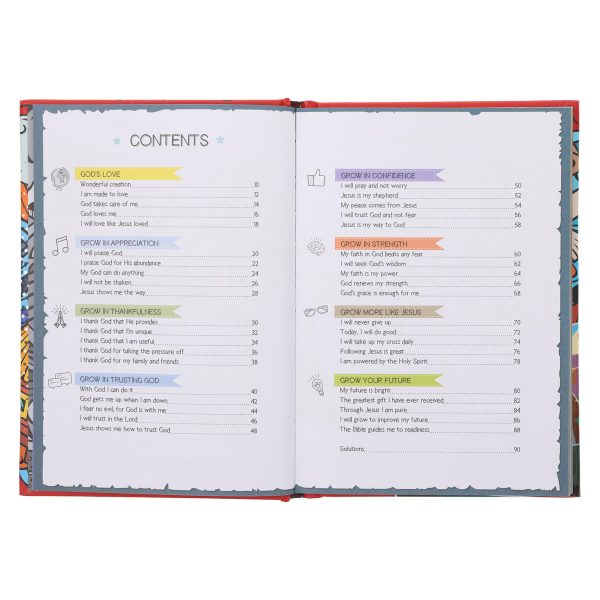 CONTENTS
GOD'S LOVE
Wonderful creation 10
I am made to love 12
God takes care of me 14
God loves me 16
I will love like Jesus loved 18
GROW IN APPRECIATION
I will praise God 20
I praise God for His abundance 22
My God can do anything 24
I will not be shaken 26
Jesus shows me the way 28
GROW IN THANKFULNESS
I thank God that He provides 30
I thank God that I'm unique 32
I thank God that I am useful 34
I thank God for taking the pressure off 36
I thank God for my family and friends 38
GROW IN TRUSTING GOD
With God I can do it 40
God gets me up when I am down 42
I fear no evil, for God is with me 44
I will trust in the Lord 46
Jesus shows me how to trust God 48
GROW IN CONFIDENCE
I will pray and not worry 50
Jesus is my shepherd 52
My peace comes from Jesus 54
I will trust God and not fear 56
Jesus is my way to God 58
GROW IN STRENGTH
My faith in God beats any fear 60
I will seek God's wisdom 62
My faith is my power 64
God renews my strength 66
God's grace is enough for me 68
GROW MORE LIKE JESUS
I will never give up 70
Today, I will do good 72
I will take up my cross daily 74
Following Jesus is great 76
I am powered by the Holy Spirit 78
GROW YOUR FUTURE
My future is bright 80
The greatest gift I have ever received 82
Through Jesus I am pure 84
I will grow to improve my future 86
The Bible guides me to readiness 88
Solutions 90